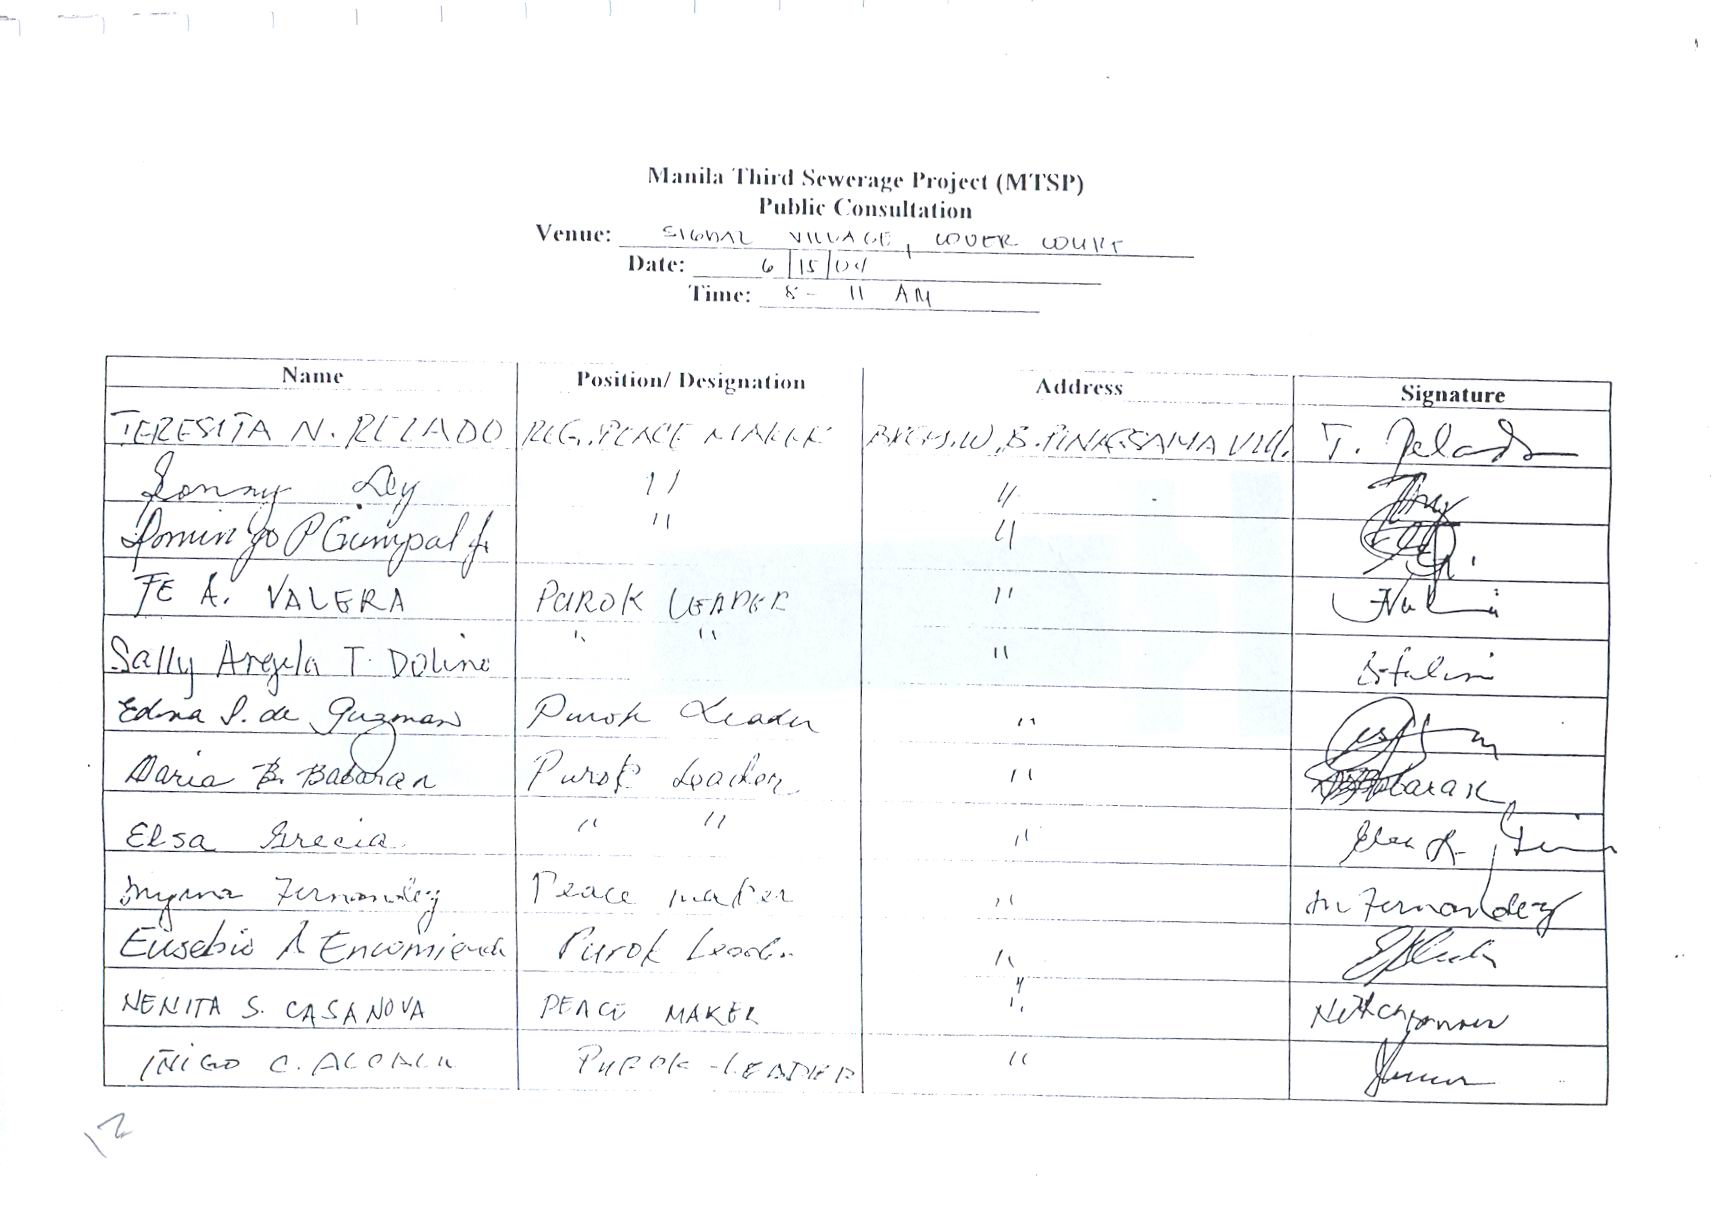 Manila Third Sewerage Project (MTSP)
Public Consultation
Venue: SIGNAL VILLAGE, COVER COURT
Date: 6/15/04
Time: 8 - 11 AM
Name Position/ Designation Address Signature
TERESITA N. RELADO REG. PEACE MAKER W.B. PINAGSAMA VILL. T. Relado
Sonny Dy " "
Domingo P Gumpal Jr " "
FE A. VALERA PUROK LEADER "
Sally Angela T. Dolino " " "
Edna S. de Guzman Purok Leader "
Daria B. Babaran Purok Leader "
Elsa Grecia " " "
Myrna Fernandez Peace maker " M Fernandez
Eusebio Encomienda Purok Leader "
NENITA S. CASANOVA PEACE MAKER "
IÑIGO C. ALCALA PUROK-LEADER "
12